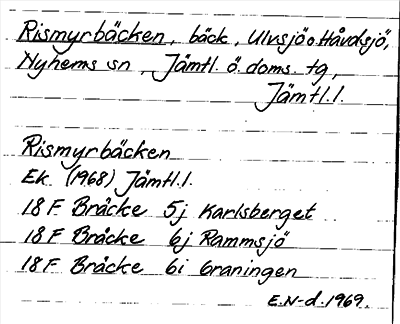 Rismyrbäcken, bäck, Ulvsjö o. Håvdsjö,
Nyhems sn, Jämtl. ö. doms. tg,
Jämtl.l.
Rismyrbäcken
Ek. (1968) Jämtl.l.
18 F Bräcke 5j Karlsberget
18 F Bräcke 6j Rammsjö
18 F Bräcke 6i Graningen
E.N-d. 1969.